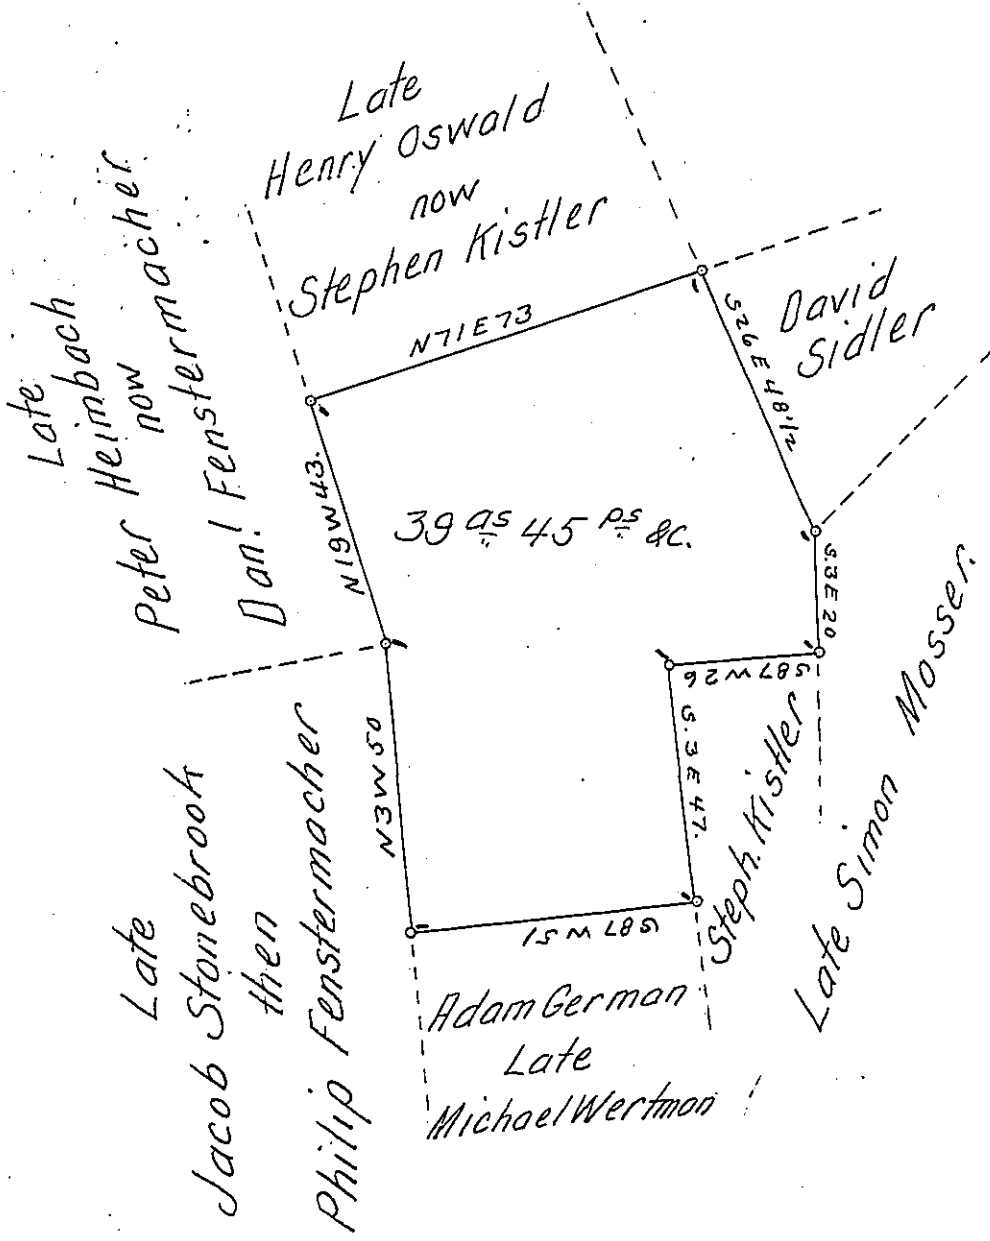 Late
Henry Oswald
now
Stephen Kistler
Late
Peter Heimbach
now
Danl. Fenstermacher
David
Sidler
N71E73
S29E48½
N19W43.
39 as 45 ps &c.
S.3E20
S87W26
S.3E47.
N3W50
S87W51
Steph. Kistler
Late Simon Mosser.
Late
Jacob Stonebrook
then
Philip Fenstermacher
Adam German
Late
Michael Wertman